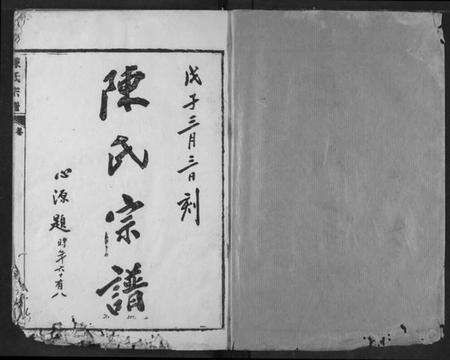 戊子三月三日刻
陳氏宗譜
心源題時年六十有八
陳氏宗譜